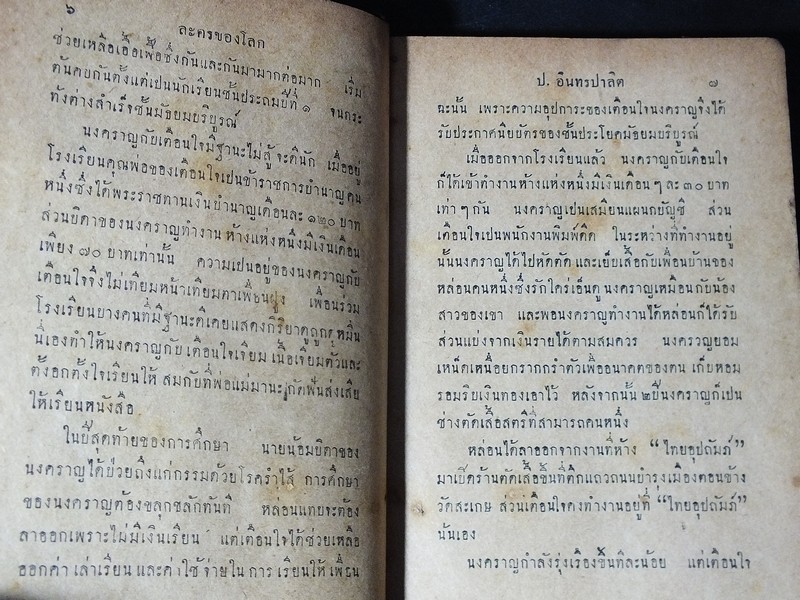 ๖
ละครของโลก
ช่วยเหลือเอื้อเฟื้อซึ่งกันและกันมามากต่อมาก เริ่ม
ต้นคบกันตั้งแต่เป็นนักเรียนชั้นประถมปีที่ ๑ จนกระ
ทั่งต่างสำเร็จชั้นมัธยมบริบูรณ์
นงคราญกับเตือนใจมีฐานะไม่สู้จะดีนัก เมื่ออยู่
โรงเรียนคุณพ่อของเตือนใจเป็นข้าราชการบำนาญคน
หนึ่งซึ่งได้พระราชทานเงินบำนาญเดือนละ ๑๒๐ บาท
ส่วนบิดาของนงคราญทำงานห้างแห่งหนึ่งมีเงินเดือน
เพียง ๗๐ บาทเท่านั้น ความเป็นอยู่ของนงคราญกับ
เตือนใจจึงไม่เทียมหน้าเทียมตาเพื่อนฝูง เพื่อนร่วม
โรงเรียนบางคนที่มีฐานะดีเคยแสดงกิริยาดูถูกดูหมิ่น
นี่เองทำให้นงคราญกับเตือนใจเจียมเนื้อเจียมตัวและ
ตั้งอกตั้งใจเรียนให้ สมกับที่พ่อแม่มานะกัดฟันส่งเสีย
ให้เรียนหนังสือ
ในปีสุดท้ายของการศึกษา นายน้อมบิดาของ
นงคราญได้ป่วยถึงแก่กรรมด้วยโรคร้ำไส้ การศึกษา
ของนงคราญต้องขลุกขลักทันที หล่อนแทบจะต้อง
ลาออกเพราะไม่มีเงินเรียน แต่เตือนใจได้ช่วยเหลือ
ออกค่า เล่าเรียน และค่าใช้จ่ายใน การ เรียนให้ เพื่อน
ป. อินทรปาลิต ๗
ฉะนั้น เพราะความอุปการะของเตือนใจนงคราญจึงได้
รับประกาศนียบัตรของชั้นประโยคมัธยมบริบูรณ์
เมื่อออกจากโรงเรียนแล้ว นงคราญกับเตือนใจ
ก็ได้เข้าทำงานห้างแห่งหนึ่งมีเงินเดือนๆ ละ ๓๐ บาท
เท่าๆ กัน นงคราญเป็นเสมียนแผนกบัญชี ส่วน
เตือนใจเป็นพนักงานพิมพ์ดีด ในระหว่างที่ทำงานอยู่
นั้นนงคราญได้ไปหัดตัด และเย็บเสื้อกับเพื่อนบ้านของ
หล่อนคนหนึ่งซึ่งรักใคร่เอ็นดู นงคราญเหมือนกับน้อง
สาวของเขา และพอนงคราญทำงานได้หล่อนก็ได้รับ
ส่วนแบ่งจากเงินรายได้ตามสมควร นงครวญยอม
เหน็ดเหนื่อยกรากกรำตัวเพื่ออนาคตของตน เก็บหอม
รอมริบเงินทองเอาไว้ หลังจากนั้น ๒ปีนงคราญก็เป็น
ช่างตัดเสื้อสตรีที่สามารถคนหนึ่ง
หล่อนได้ลาออกจากงานที่ห้าง “ไทยอุปถัมภ์”
มาเปิดร้านตัดเสื้อขึ้นที่ตึกแถวถนนบำรุงเมืองตอนข้าง
วัดสะเกษ ส่วนเตือนใจคงทำงานอยู่ที่ “ไทยอุปถัมภ์”
นั่นเอง
นงคราญกำลังรุ่งเรืองขึ้นทีละน้อย แต่เตือนใจ